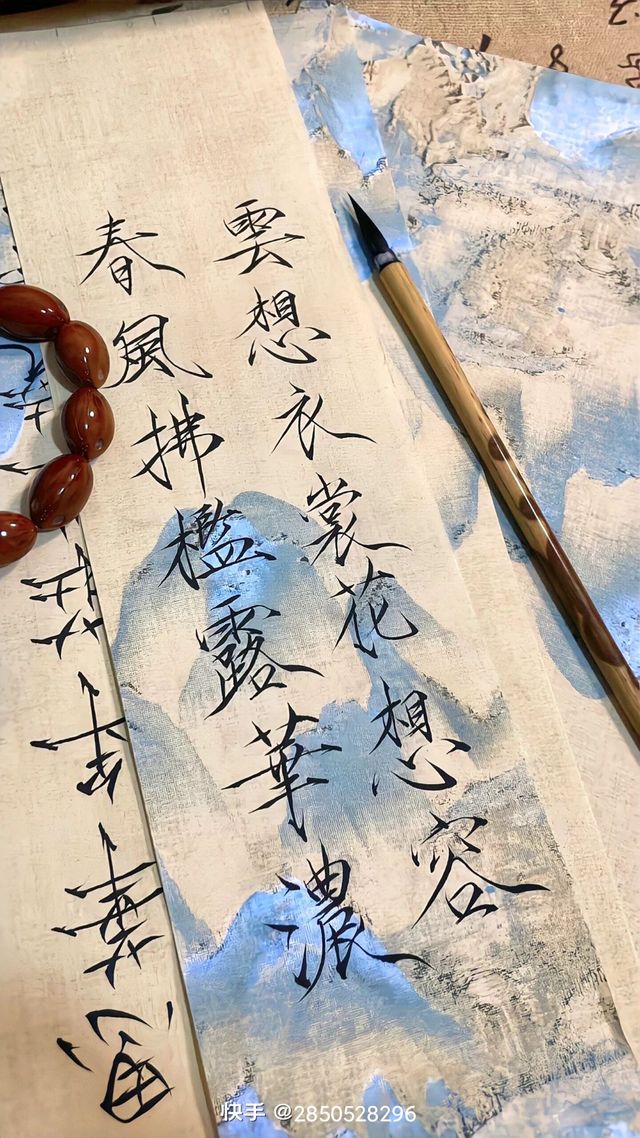 雲想衣裳花想容
春風拂檻露華濃
快手 @2850528296